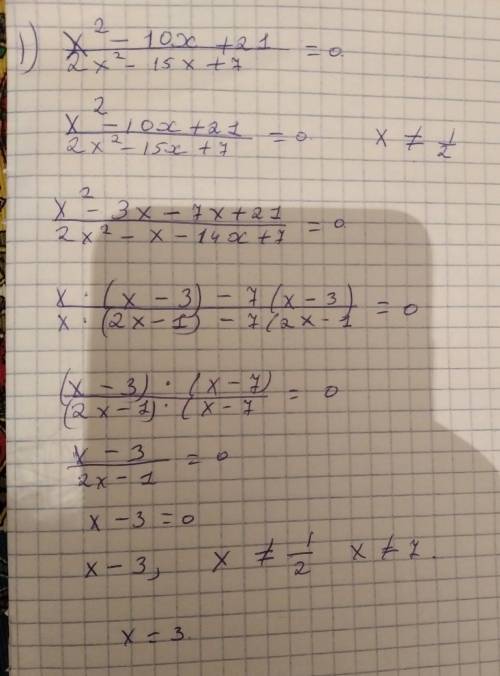 1) x² - 10x + 21 / 2x² - 15x + 7 = 0.
x² - 10x + 21 / 2x² - 15x + 7 = 0. x ≠ 1/2
x² - 3x - 7x + 21 / 2x² - x - 14x + 7 = 0
x · (x - 3) - 7 (x - 3) / x · (2x - 1) - 7 (2x - 1 = 0
(x - 3) · (x - 7) / (2x - 1) · (x - 7 = 0
x - 3 / 2x - 1 = 0
x - 3 = 0
x - 3, x ≠ 1/2 x ≠ 7.
x = 3.